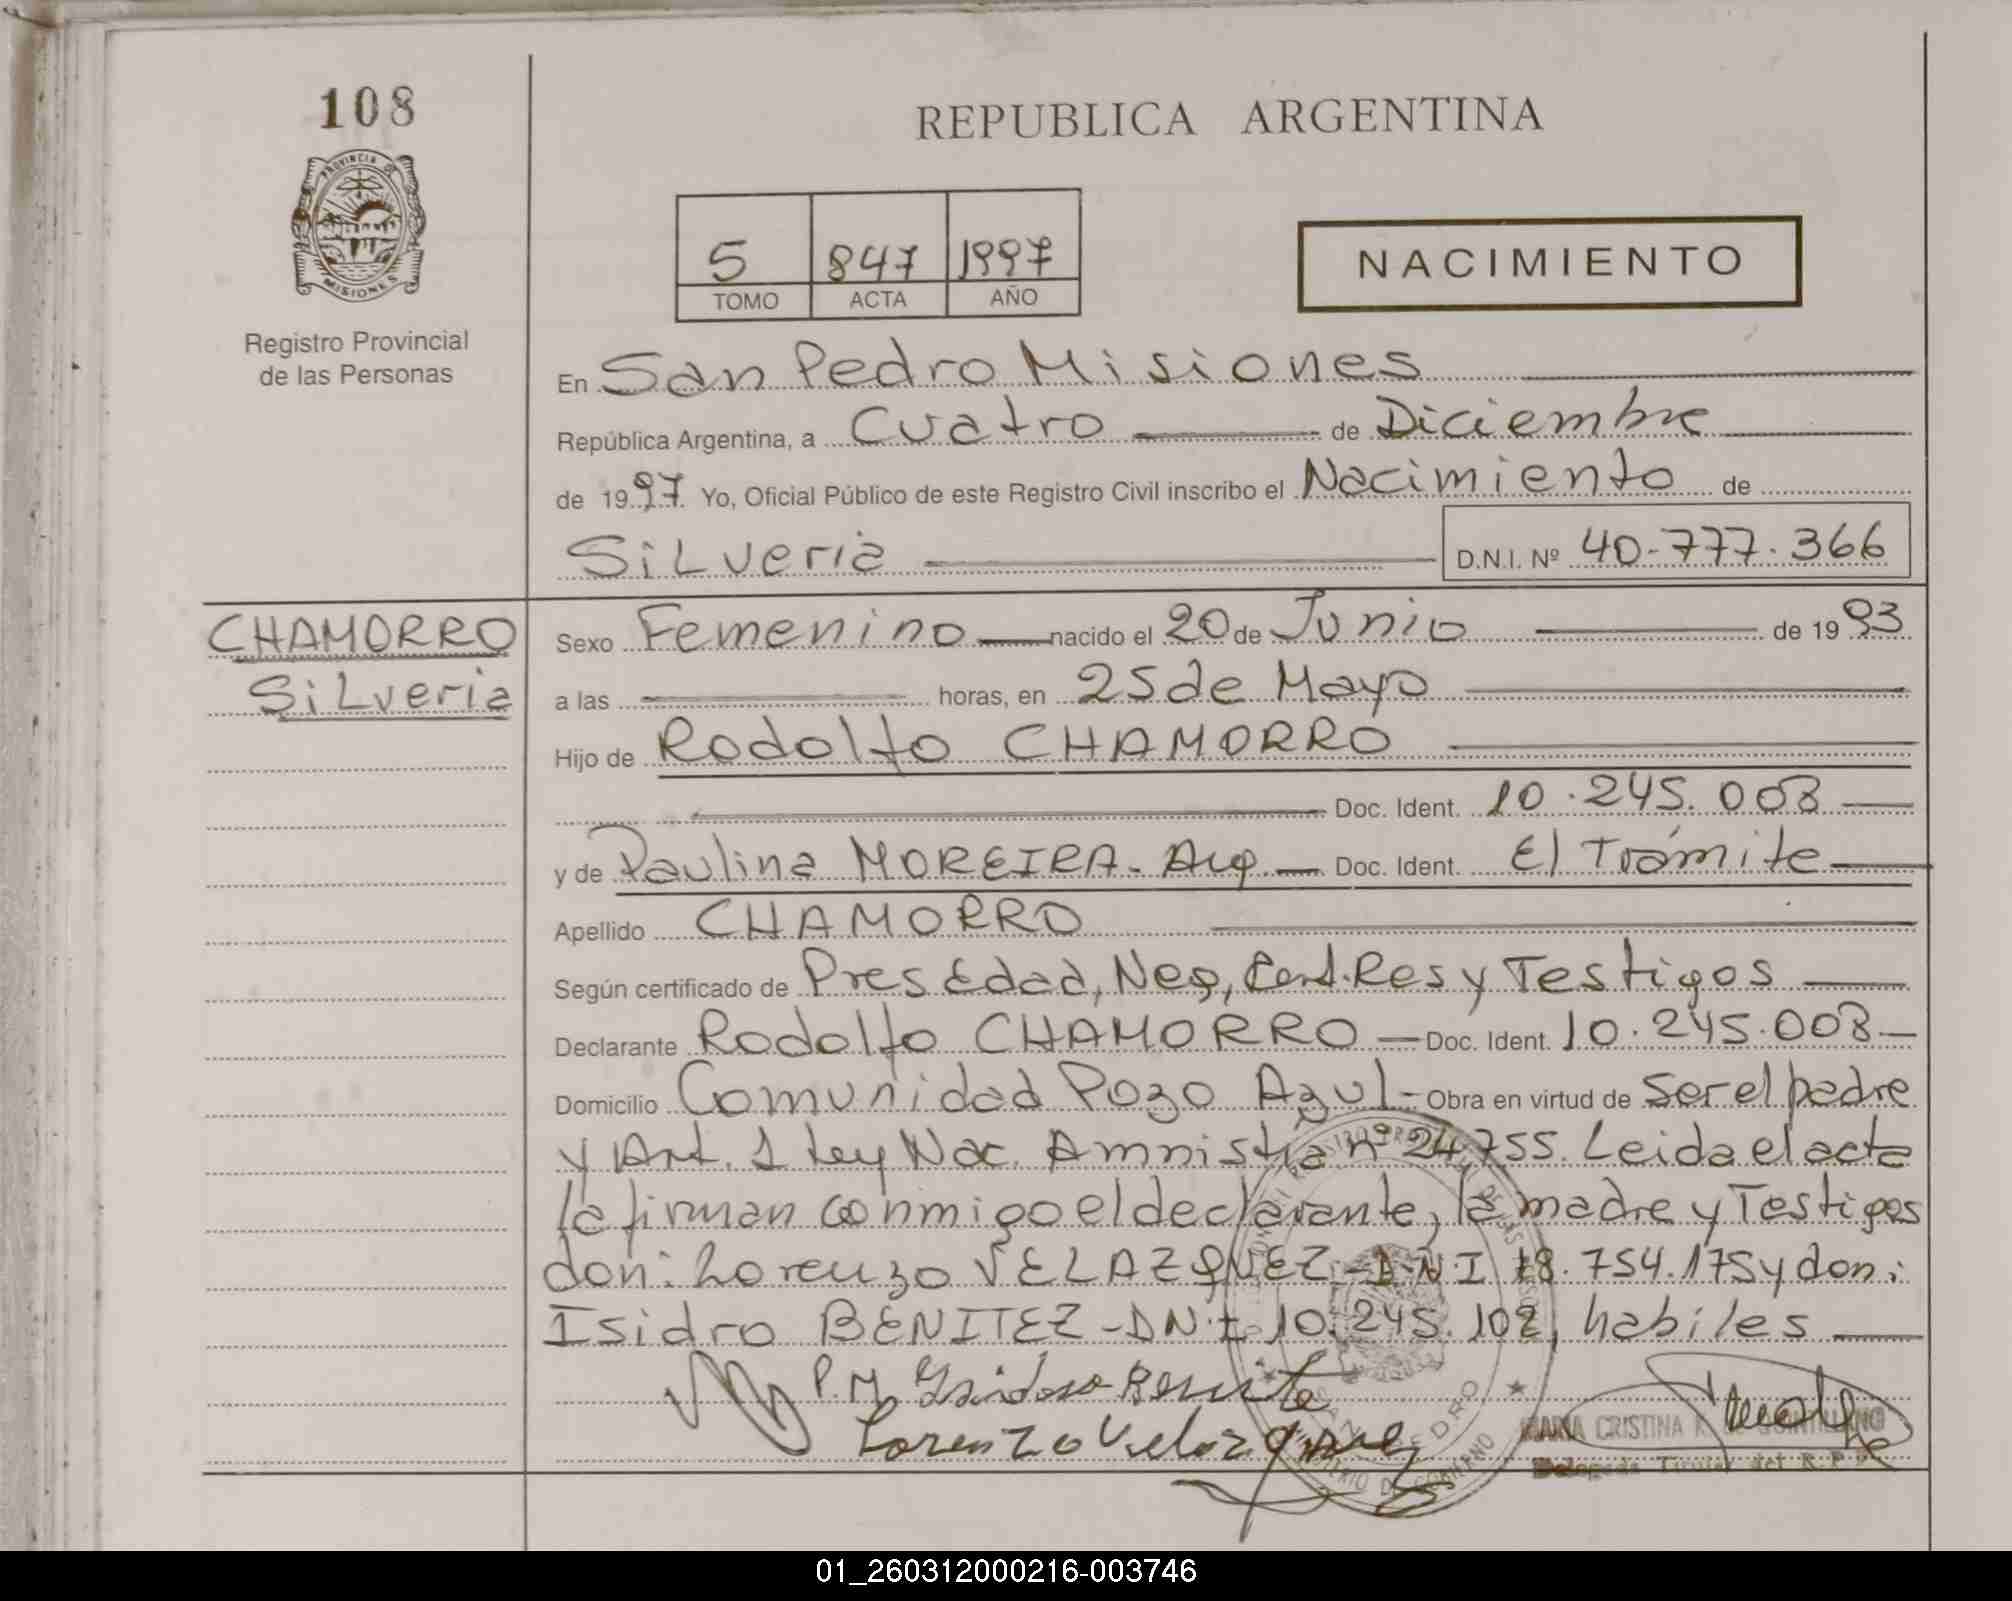 108
REPUBLICA ARGENTINA
PROVINCIA DE
MISIONES
5 847 1997
TOMO ACTA AÑO
NACIMIENTO
Registro Provincial
de las Personas
En San Pedro Misiones
República Argentina, a Cuatro de Diciembre
de 1997 Yo, Oficial Público de este Registro Civil inscribo el Nacimiento de
SiLveria D.N.I. Nº 40.777.366
CHAMORRO
SiLveria
Sexo Femenino nacido el 20 de Junio de 1993
a las horas, en 25 de Mayo
Hijo de Rodolfo CHAMORRO
Doc. Ident. 10.245.008
y de Paulina MOREIRA - Arg Doc. Ident. El Trámite
Apellido CHAMORRO
Según certificado de Pres Edad, Neg, Cert. Res y Testigos
Declarante Rodolfo CHAMORRO Doc. Ident. 10.245.008
Domicilio Comunidad Pozo Azul - Obra en virtud de Ser el padre
y Art. 1 Ley Nac. Amnistia nº 24.755. Leida el acta
la firman conmigo el declarante, la madre y Testigos
don: Lorenzo VELAZQUEZ - D.N.I 18.754.175 y don:
Isidro BENITEZ - DN.I 10.245.102, habiles
P.M. Isidoro Benite
Lorenzo Velazquez
MARIA CRISTINA
Delegada Titular del R.P.P.
01_260312000216-003746